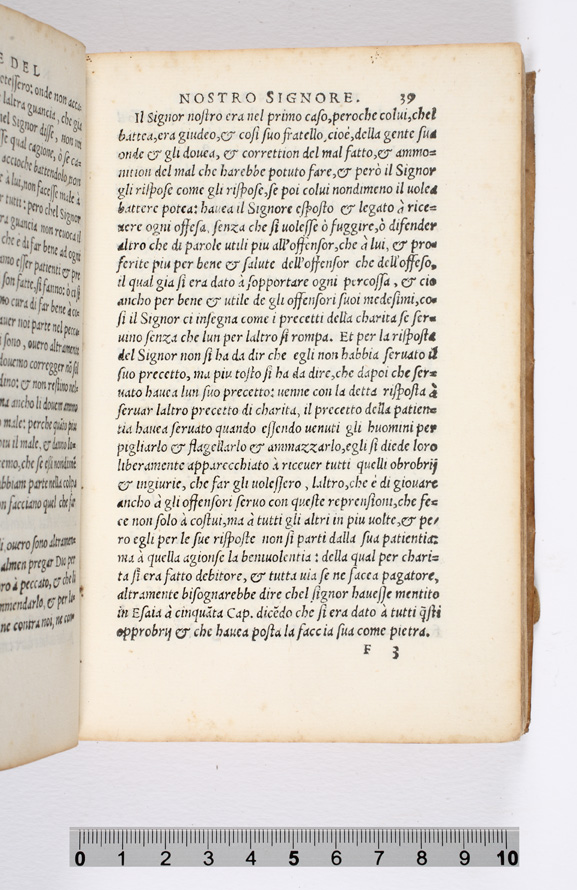 E DEL
NOSTRO SIGNORE. 39
Il Signor nostro era nel primo caso, peroche colui, chel
battea, era giudeo, & cosi suo fratello, cioè, della gente sua
onde & gli douea, & correttion del mal fatto, & ammo=
nition del mal che harebbe potuto fare, & però il Signor
gli rispose come gli rispose, se poi colui nondimeno il uolea
battere potea: hauea il Signore esposto & legato à rice=
uere ogni offesa, senza che si uolesse ò fuggire, ò difender
altro che di parole utili piu all'offensor, che à lui, & pro=
ferite piu per bene & salute dell'offensor che dell'offeso,
il qual gia si era dato à sopportare ogni percossa, & cio
ancho per bene & utile de gli offensori suoi medesimi, co=
si il Signor ci insegna come i precetti della charita se ser=
uino senza che lun per laltro si rompa. Et per la risposta
del Signor non si ha da dir che egli non habbia seruato il
suo precetto, ma piu tosto si ha da dire, che dapoi che ser=
uato hauea lun suo precetto: uenne con la detta risposta à
seruar laltro precetto di charita, il precetto della patien=
tia hauea seruato quando essendo uenuti gli huomini per
pigliarlo & flagellarlo & ammazzarlo, egli si diede loro
liberamente apparecchiato à riceuer tutti quelli obrobrij
& ingiurie, che far gli uolessero, laltro, che è di giouare
ancho à gli offensori seruo con queste reprensioni, che fe=
ce non solo à costui, ma à tutti gli altri in piu uolte, & pe=
ro egli per le sue risposte non si parti dalla sua patientia:
ma à quella agionse la beniuolentia: della qual per chari=
ta si era fatto debitore, & tutta uia se ne facea pagatore,
altramente bisognarebbe dire chel signor hauesse mentito
in Esaia à cinquāta Cap. dicēdo che si era dato à tutti q̄sti
opprobrij & che hauea posta la faccia sua come pietra.
F 3
0 1 2 3 4 5 6 7 8 9 10